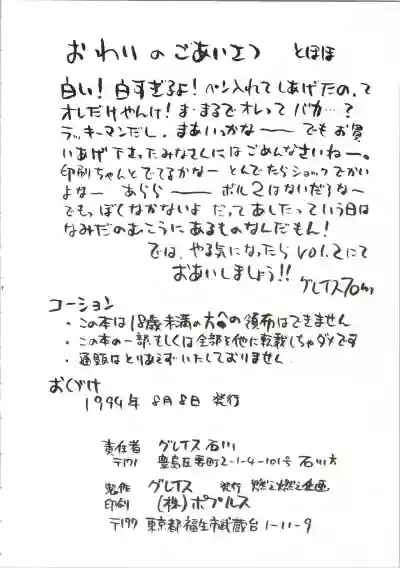 おわりのごあいさつ とほほ
白い!白すぎるよ!ペン入れてしあげたの、て
オレだけやんけ!ま・まるでオレってバカ…?
ラッキーマンだし、まあいっかなー でもお買
いあげ下さったみなさんにはごめんなさいねー。
印刷ちゃんとでてるかなー とんでたらショックでかい
よなー あらら ー ボル2はないだろなー
でもっぼくなかないよ だってあしたっていう日は
なみだのむこうにあるものなんだもん!
では、やる気になったら Vol.2にて
おあいしましょう!!
グレイス石川
コーション
・この本は18歳未満の方への頒布はできません
・この本の一部もしくは全部を他に転載しちゃダメです
・通販はとりあえずいたしておりません
おくづけ
1994年 8月8日 発行
責任者 グレイス石川
〒171 豊島区要町2-1-4-101号 石川方
製作 グレイス 発行 燃え燃え企画
印刷 (株)ポプルス
〒197 東京都福生市武蔵台1-11-9